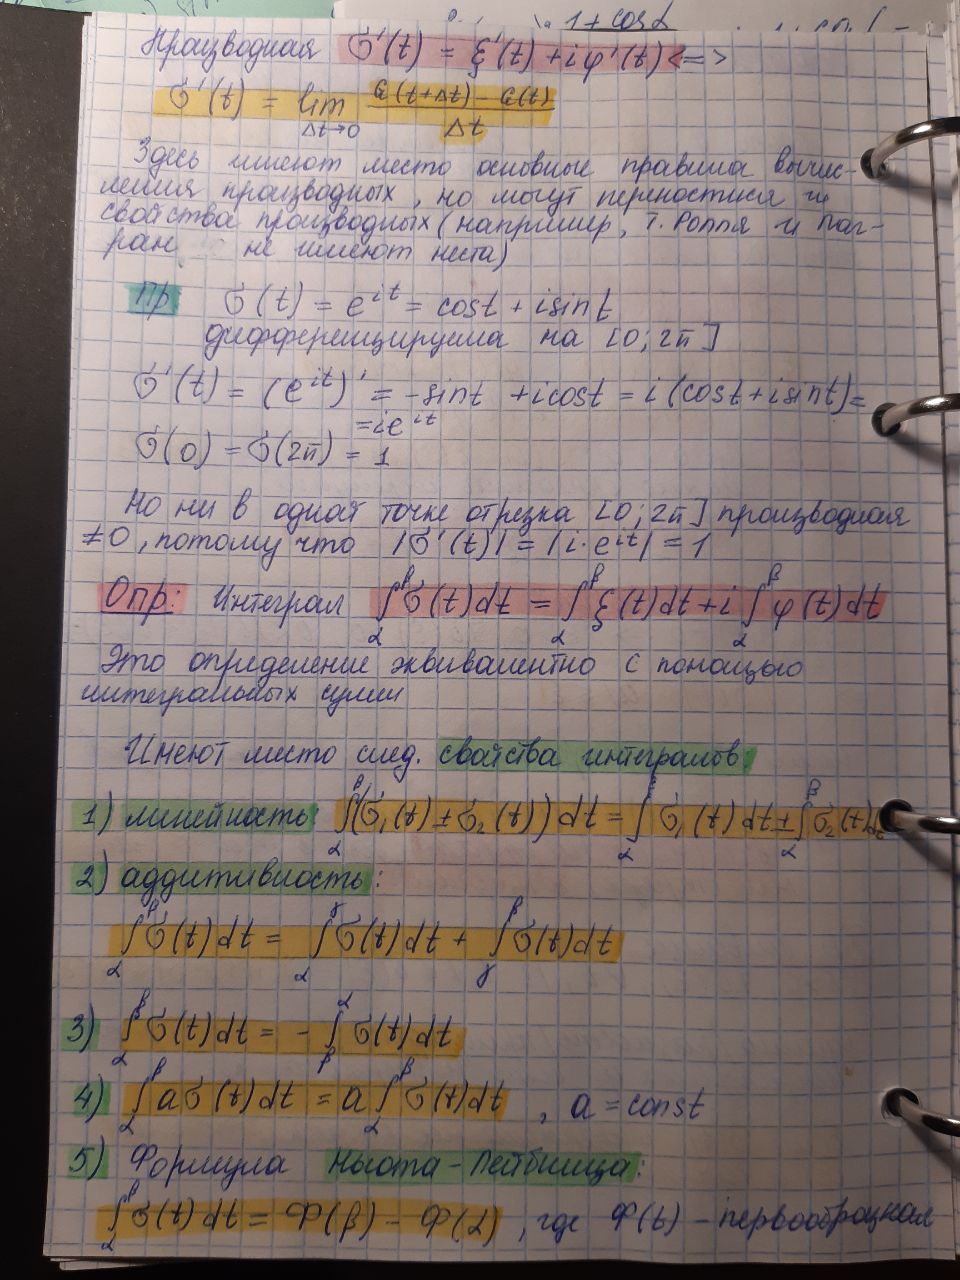 1 + cos α
Производная σ'(t) = ξ'(t) + iφ'(t) <=>
σ'(t) = lim_{Δt→0} (σ(t+Δt) - σ(t)) / Δt
Здесь имеют место основные правила вычис-
ления производных, но могут переностися не
свойства производных (например, т. Ролля и Лаг-
ран не имеют места)
Пр σ(t) = e^{it} = cost + isint
дифференцируема на [0; 2π]
σ'(t) = (e^{it})' = -sint + icost = i(cost + isint) =
= ie^{it}
σ(0) = σ(2π) = 1
Но ни в одной точке отрезка [0; 2π] производная
≠0, потому что |σ'(t)| = |i·e^{it}| = 1
Опр: Интеграл ∫_α^β σ(t)dt = ∫_α^β ξ(t)dt + i ∫_α^β φ(t)dt
Это определение эквивалентно с помощью
интегральных сумм
Имеют место след. свойства интегралов
1) линейность: ∫_α^β (σ₁(t) ± σ₂(t)) dt = ∫_α^β σ₁(t) dt ± ∫_α^β σ₂(t) dt
2) аддитивность:
∫_α^β σ(t) dt = ∫_α^γ σ(t) dt + ∫_γ^β σ(t) dt
3) ∫_α^β σ(t) dt = - ∫_β^α σ(t) dt
4) ∫_α^β aσ(t) dt = a ∫_α^β σ(t) dt , a = const
5) Формула Ньюта-Лейбница:
∫_α^β σ(t) dt = Φ(β) - Φ(α) , где Φ(t) - первообразная